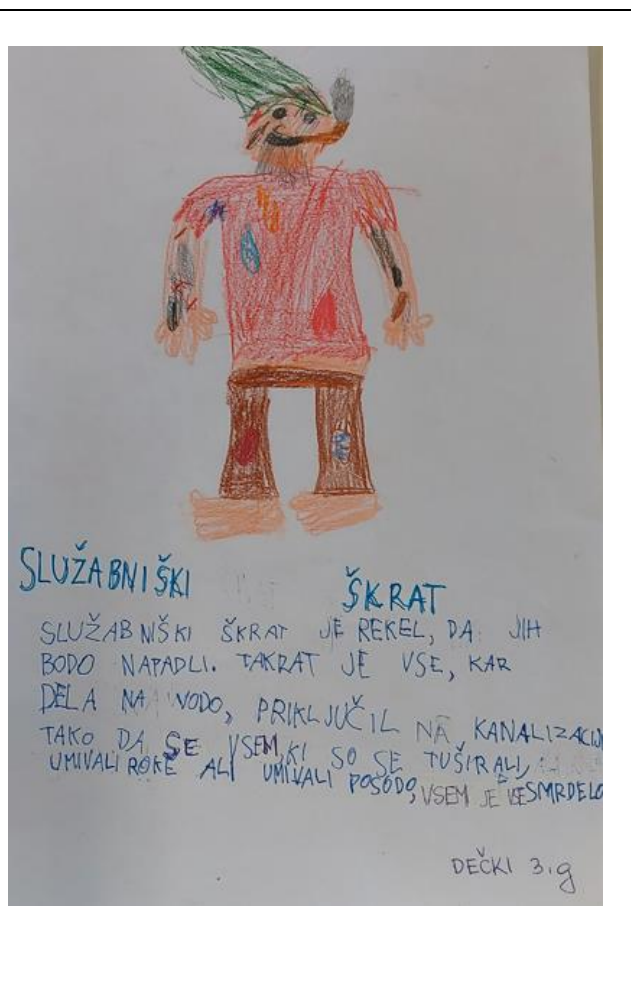 SLUŽABNIŠKI ŠKRAT
SLUŽABNIŠKI ŠKRAT JE REKEL, DA JIH
BODO NAPADLI. TAKRAT JE VSE, KAR
DELA NA VODO, PRIKLJUČIL NA KANALIZACIJO
TAKO DA SE VSEM, KI SO SE TUŠIRALI,
UMIVALI ROKE ALI UMIVALI POSODO, VSEM JE VSE SMRDELO
DEČKI 3.g